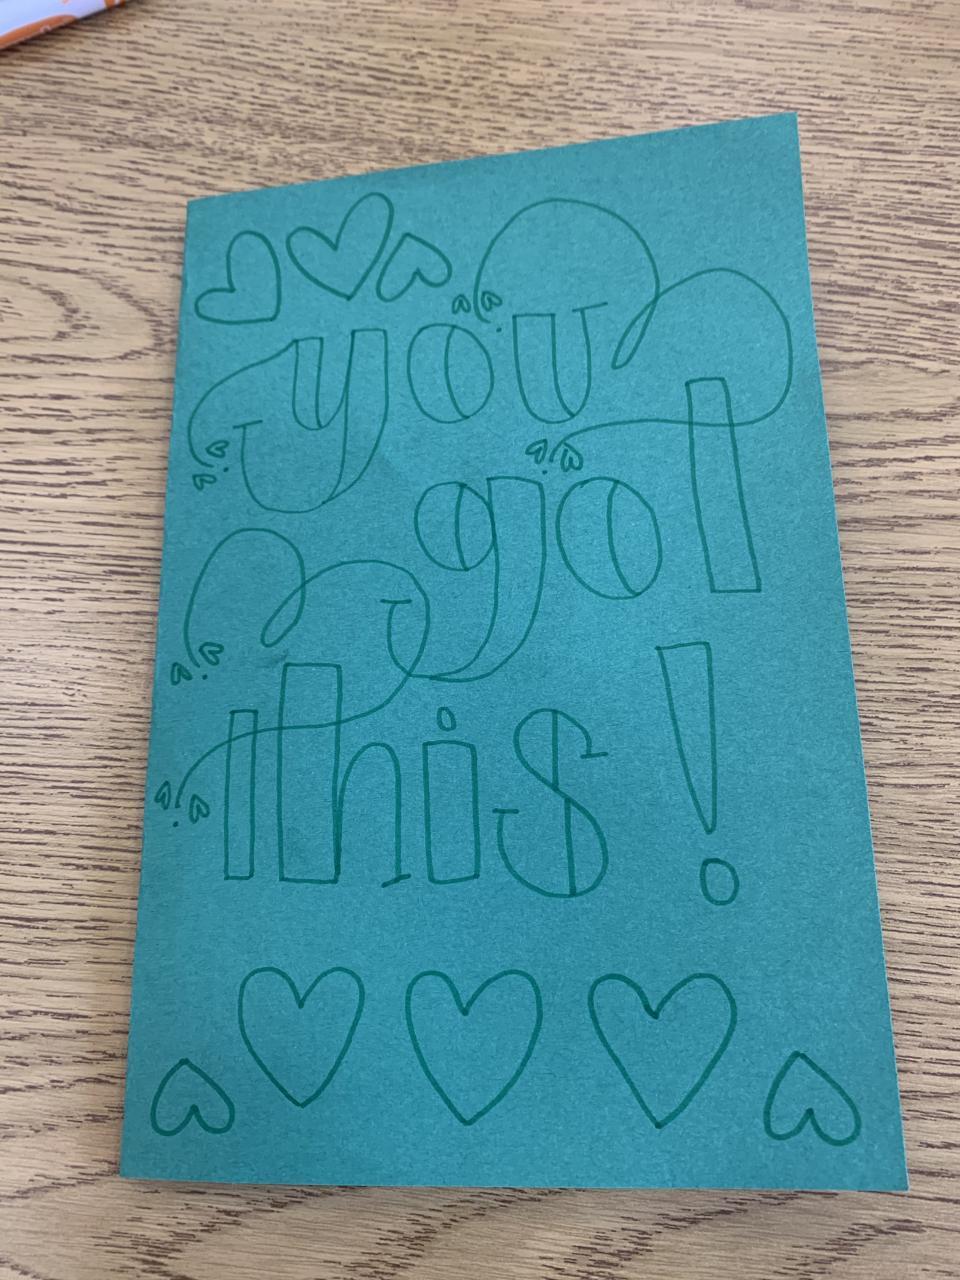 you
got
this!